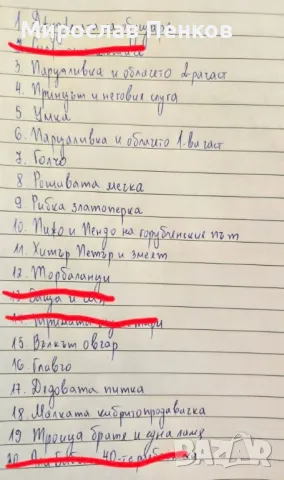 Мирослав Пенков
1.
2.
3 Парцаливка и облачето 2.вагаст
4. Принцът и неговия слуга
5 Умка
6. Парцаливка и облачето 1.вагаст
7. Голчо
8 Рошавата мечка
9 Рибка златоперка
10. Пижо и Пендо на горублянския път
11. Хитър Петър и змеят
12. Торбаланци
13.
14. Тримата
15. Вълкът овчар
16. Главчо
17. Дядовата питка
18. Малката кибритопродавачка
19 Троица братя и една ламя
20. 40-те
bazar